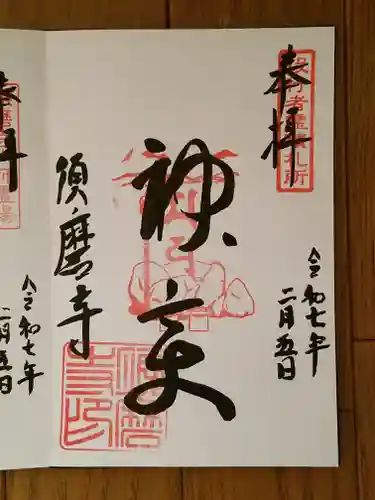 奉拝
役行者霊蹟札所
令和七年
二月五日
神変
須磨寺
須磨
寺印
奉拝
令和七年
二月五日